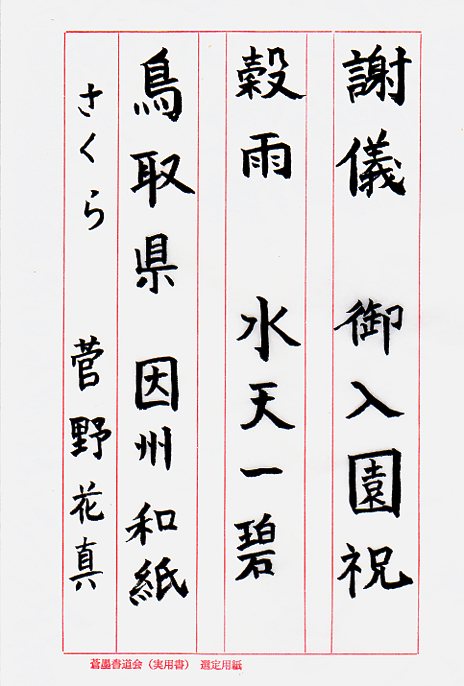 謝儀　御入園祝
穀雨　水天一碧
鳥取県　因州和紙
さくら　菅野花真
蒼墨書道会（実用書）　選定用紙